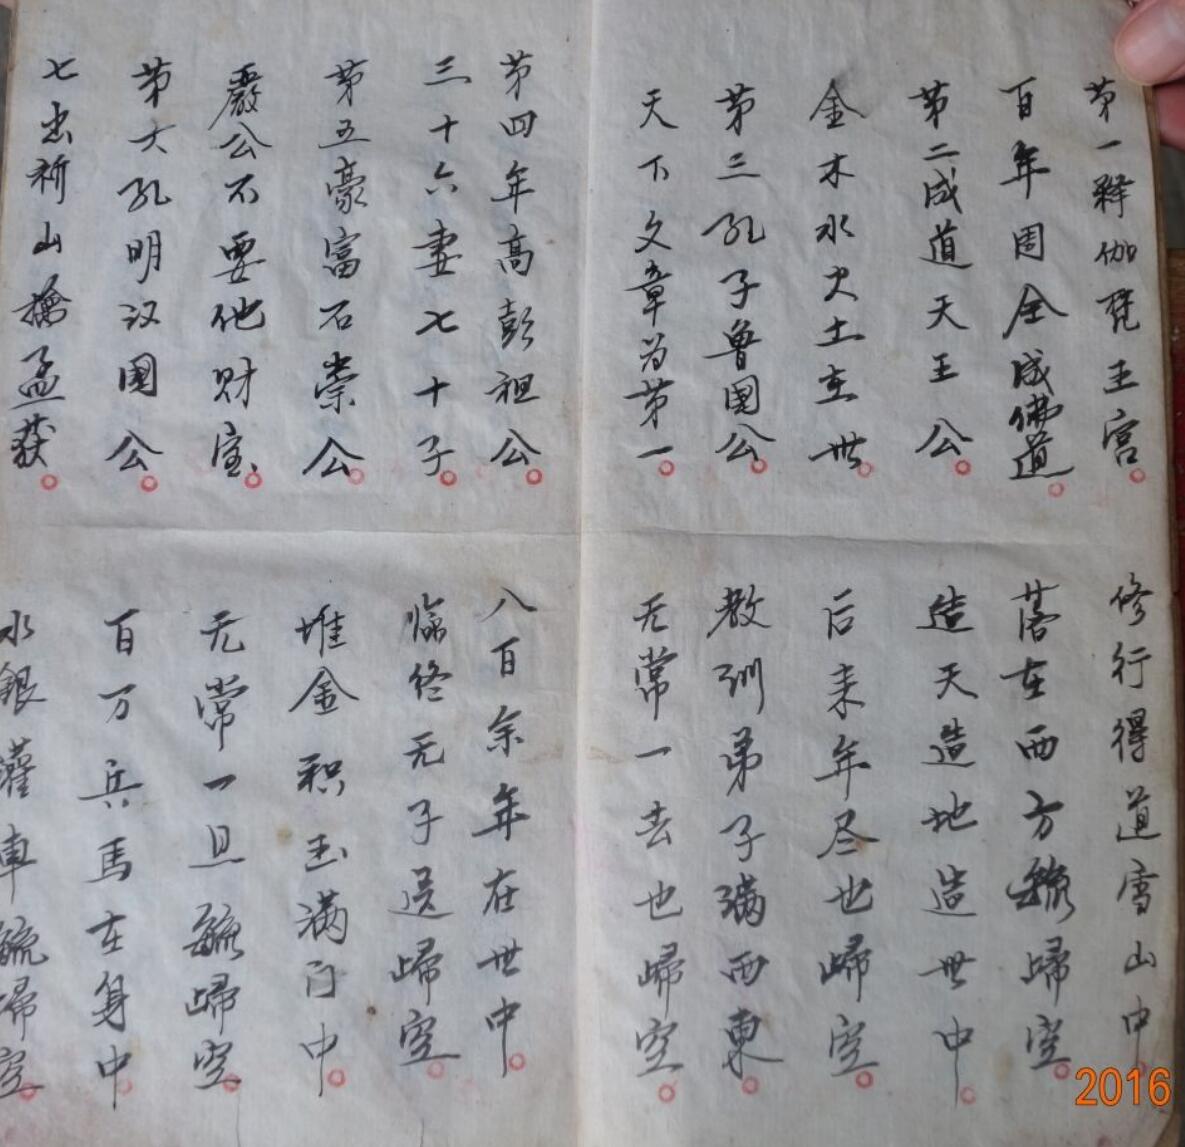 第一释伽梵王宫
修行得道雪山中
百年周全成佛道
落在西方毓歸空
第二成道天王公
造天造地造世中
金木水火土在世
后来年尽也歸空
第三孔子魯国公
教训弟子满西東
天下文章为第一
无常一去也歸空
第四年高彭祖公
八百余年在世中
三十六妻七十子
临终无子送歸空
第五豪富石崇公
堆金积玉满门中
嚴公不要他财宝
无常一旦毓歸空
第六孔明汉国公
百万兵馬在身中
七出祈山擒孟获
水銀灌車毓歸空
2016